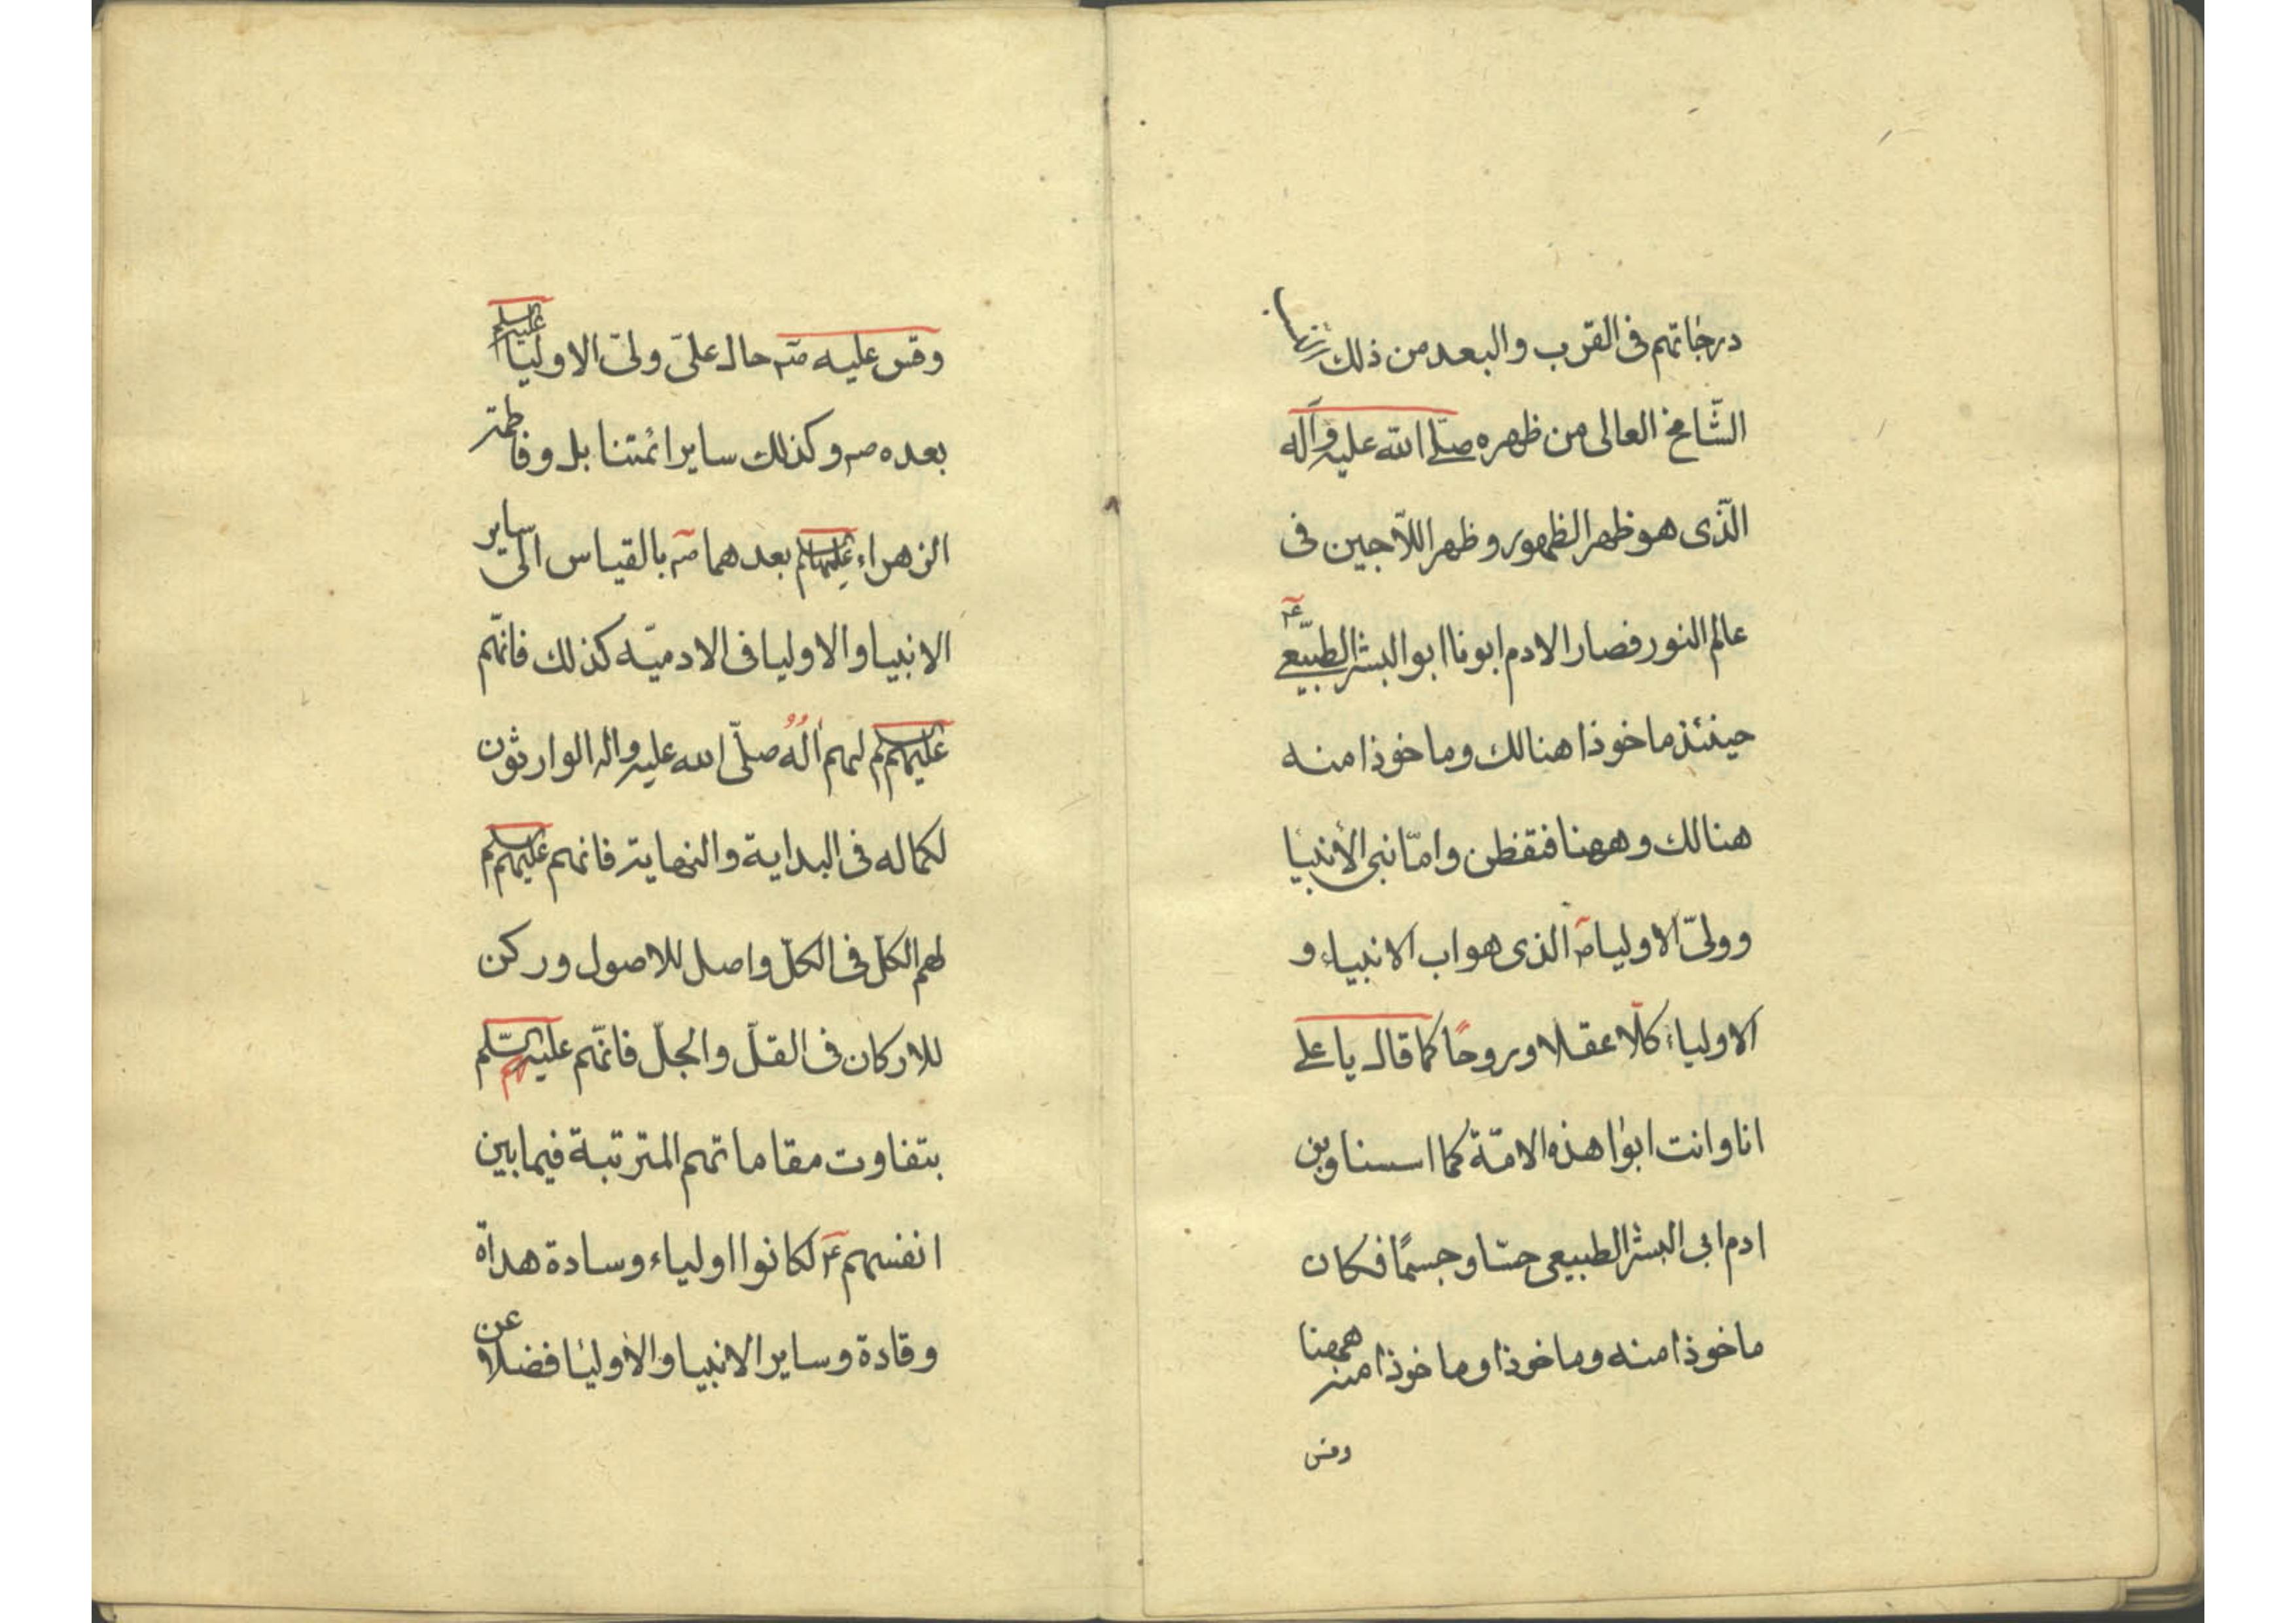 درجاتهم فى القرب والبعد من ذلك
الشّامخ العالى من ظهره صلّى الله عليه وآله
الّذى هو ظهر الظهور وظهر اللّاجين فى
عالم النور فصار الادم ابونا ابو البشر الطبيّعى عم
حينئذ ماخوذا هنالك وماخوذا منه
هنالك وههنا فتفطن وامّا نبى الأنبيا
وولىّ الاوليا صم الذى هو اب الانبياء و
الاولياء كلّا عقلا وروحًا كما قال يا على
انا وانت ابوا هذه الامّة كما اسسنا وبن
ادم ابى البشر الطبيعى حسّا وجسمًا فكان
ماخوذا منه وماخوذا وماخوذا منه ههنا
وقس
وقس عليه صم حال علىّ ولىّ الاوليا عليه السلم
بعده صم وكذلك ساير ائمتنا بل وفاطمة
الزهراء عليهم السلم بعدهما صم بالقياس الى ساير
الانبيا والاوليا فى الادميّة كذلك فانّهم
عليهم السلم لهم آلُهُ صلّى الله عليه واله الوارثون
لكماله فى البداية والنهاية فانهم عليهم السلم
لهم الكلّ فى الكلّ واصل للاصول وركن
للاركان فى القلّ والجلّ فانّهم عليهم السّلم
بتفاوت مقاماتهم المترتبة فيما بين
انفسهم عم لكانوا اولياء وسادة هداة
وقادة وساير الانبيا والأوليا فضلا عن